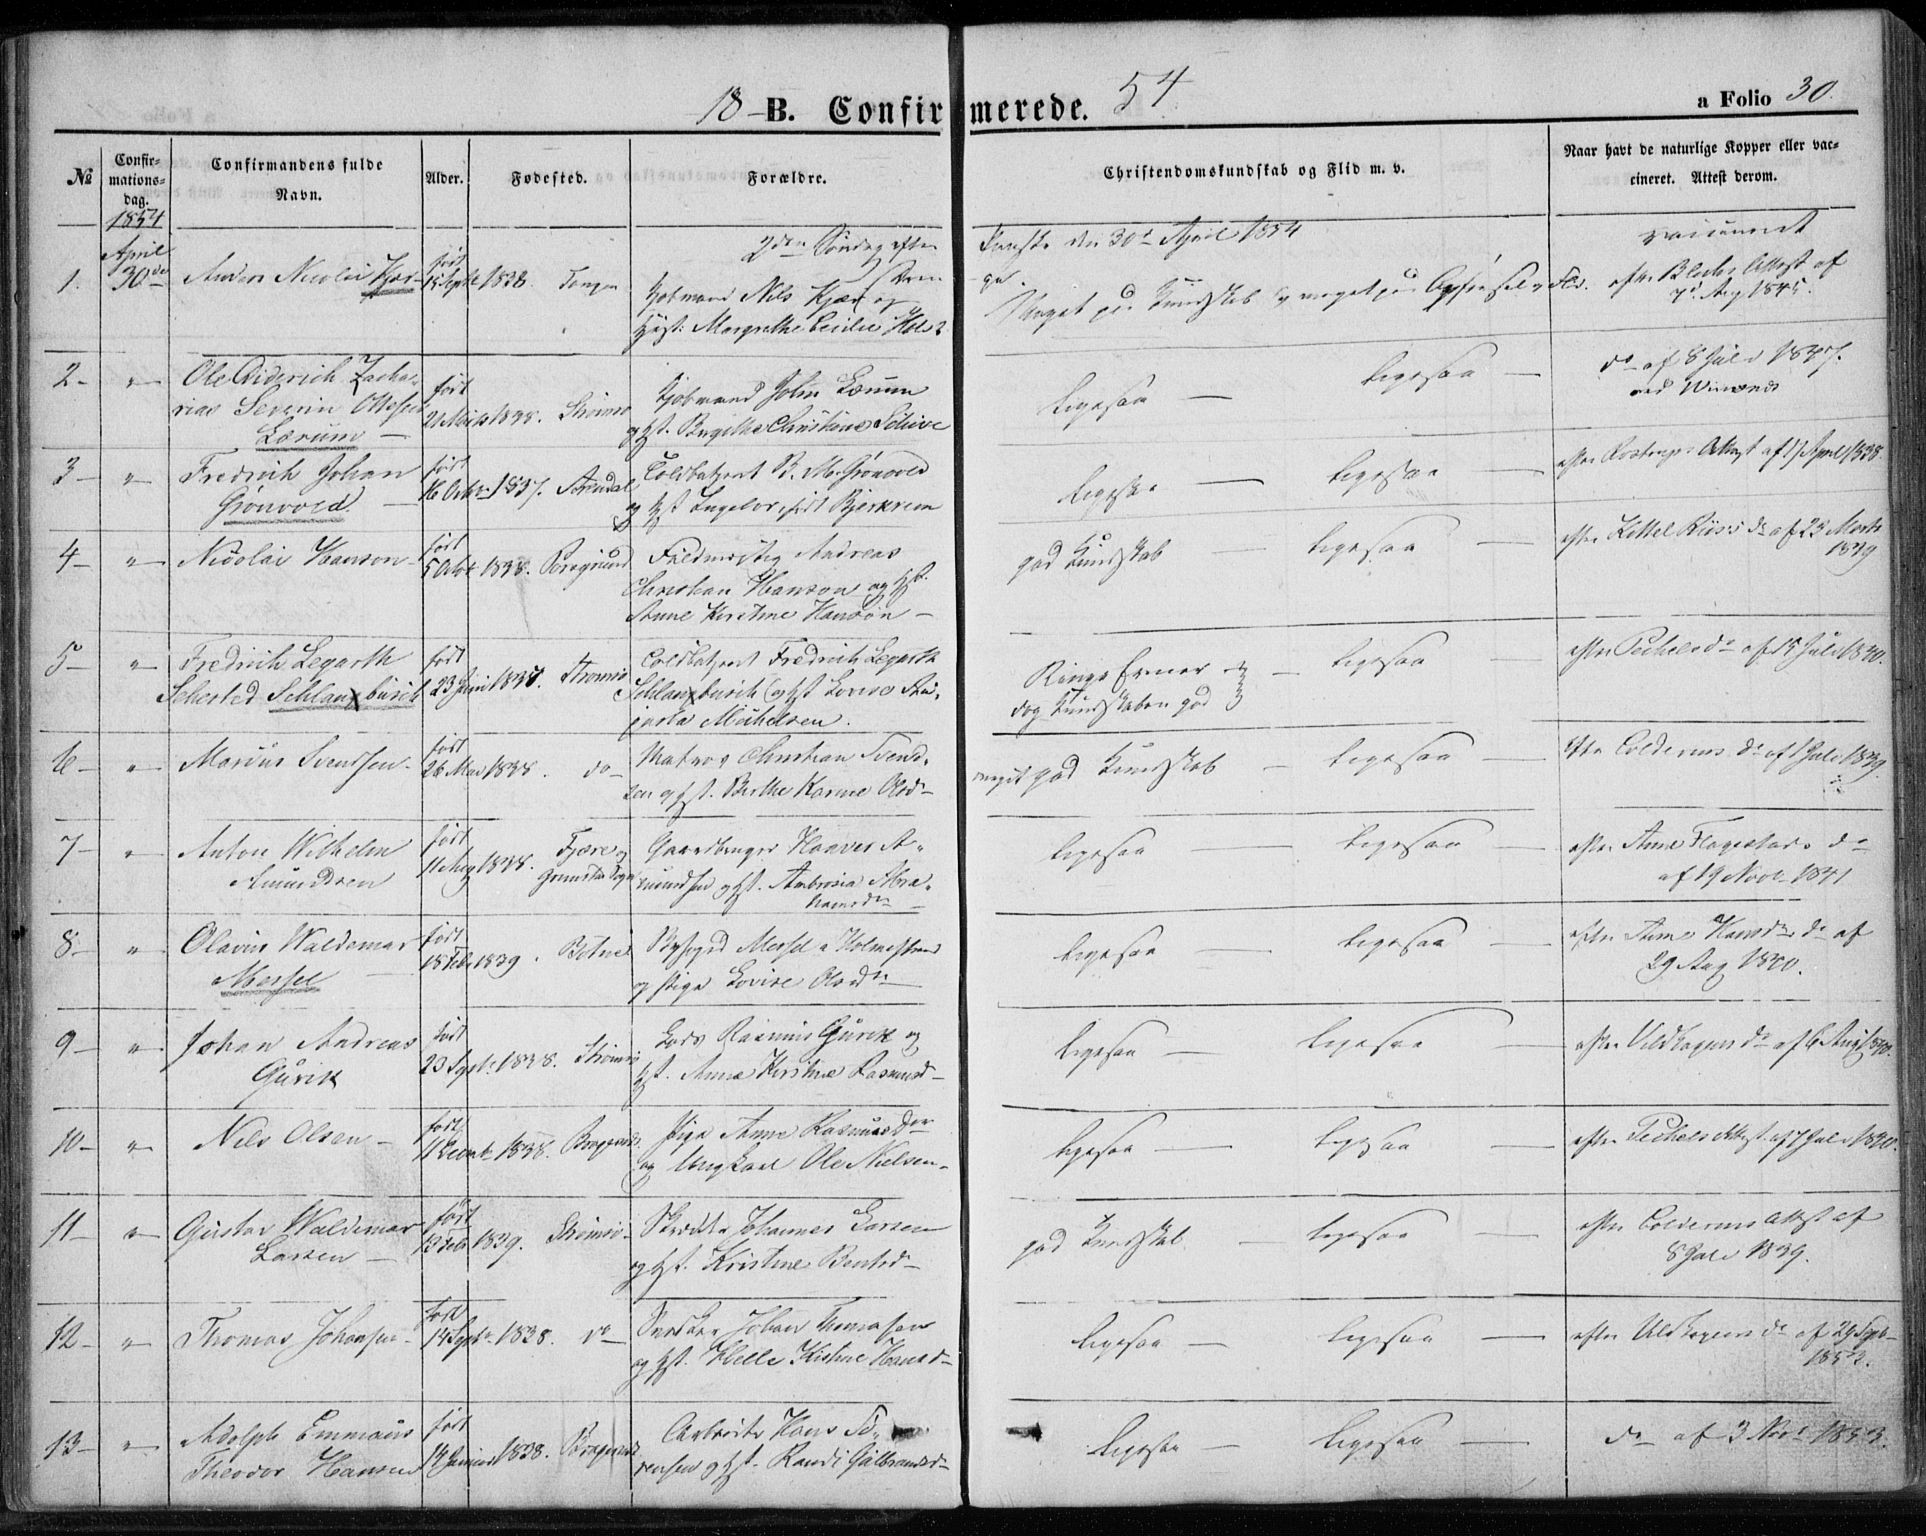 18 - B. Confirmerede. 54. a Folio 30.
№ Confirmationsdag. Confirmandens fulde Navn. Alder. Fødested. Forældre. Christendomskundskab og Flid m. v. Naar havt de naturlige Kopper eller vaccineret. Attest derom.
1854
2den Søndag efter Paaske den 30te April 1854
April 30de
1. Anders Nicolai Kjær født Septr 1838. Tangen
Kjøbmand Nils Kjær og
Hust: Margrethe Cecilie Holst
Meget god Kundskab og meget god Opførsel og Flid.
vaccineret
efter Blochs Attest af
7d Aug 1845.
2 - " Ole Diderich Zacharias Severin Ottesen Lærum født Marts 1838. Strømsø
Kjøbmand John Lærum
og Hst. Birgitte Christine Schive
ligesaa - ligesaa -
do af 8 Juli 1847.
3 - " Fredrich Johan Grønvold født 16 Octbr 1837. Arendal
Toldbetjent B. M. Grønvold
og Hst Ingeborg født Bjerkrem
ligesaa - ligesaa -
efter Rostrups Attest af 17 April 1838.
4 - " Nicolai Hanson født 5 Octr 1838. Porsgrund
Andreas
Christian Hanson og Hst.
Anne Kirstine Hansøn -
god Kundskab - ligesaa -
efter Kittel Riis's do af 23 Marts
1839
5 - " Fredrich Legarth Schested Schlanbusch født 23 Juni 1838. Strømsø
Toldbetjent Fredrich Legarth
Schlanbusch og Hst Lovise
Michelsen.
Ringe Evner
dog Kundskaben god - ligesaa -
efter Pechels do af 15 Juli 1840.
6 - " Marius Svendsen - født 26 Mai 1838. do -
Matros Christian Svend-
sen og Hst. Berthe Karine Olsd -
meget god Kundskab - ligesaa -
efter Colderups do af 1 Juli 1839.
7 - " Anton Wilhelm Amundsen født 11 Aug 1838. Fjære og Grimstad Sogn
Gaardbruger Haaver A-
mundsen og Hst. Ambrosia Abra-
hamsdr
ligesaa - ligesaa -
efter Anne Flagestads do
af 19 Novbr 1841
8 - " Olavus Waldemar Messel - født 18 Febr 1839. Botne
Byfoged Messel a Holmestrand
og Pige Lovise Olsdr
ligesaa - ligesaa -
efter Anne Hansdrs do af
29 Aug 1840.
9 - " Johan Andreas Gurck født 23 Septr 1838. Strømsø
Lods Rasmus Gurck og
Hst. Anne Kirstine Rasmusd -
ligesaa - ligesaa -
efter Uldhagens do af 6 Aug 1840.
10 - " Nils Olsen - født 11 Decmbr 1838. Bragernes
Pige Anne Rasmusdr
og Ungkarl Ole Nielsen -
ligesaa - ligesaa -
efter Pechels Attest af 7 Juli 1840.
11 - " Gustav Waldemar Larsen - født 13 Febr 1839. Strømsø -
Skrædder Johannes Larsen
og Hst. Kristine Bentsd -
god Kundskab - ligesaa -
efter Colderups Attest af
8 Juli 1839.
12 - " Thomas Johansen - født 14 Septr 1838. do -
Snedker Johan Thomasen
og Hst. Helle Kistine Hansd -
ligesaa - ligesaa -
efter Uldhagens do af 29 Septr
1853.
13 - " Adolph Emmaus Theodor Hansen født 14 Januar 1838. Bragernes
Arbeider Hans To-
rensen og Hst. Randi Gulbrandsd -
ligesaa - ligesaa -
do af 3 Novr 1853.